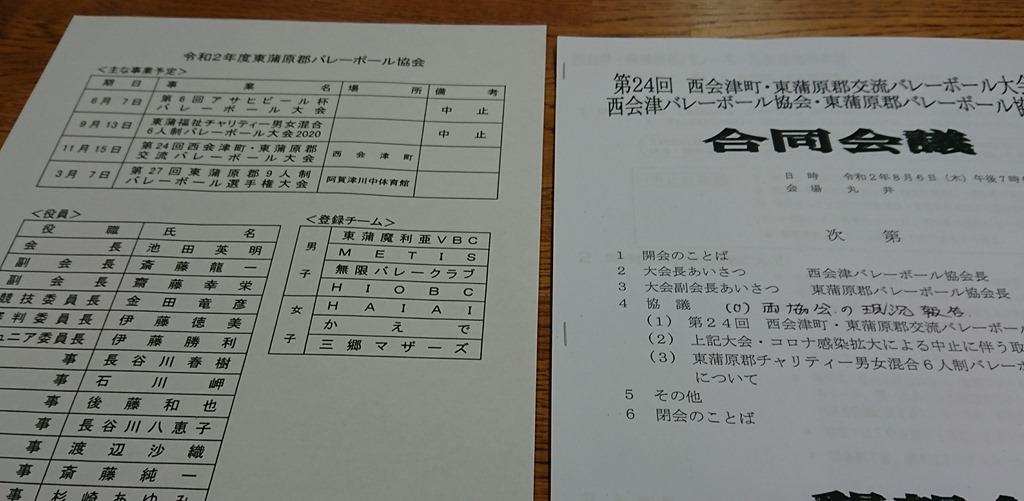 令和2年度東蒲原郡バレーボール協会
＜主な事業予定＞
期 日 事 業 名 場 所 備 考
6月 7日 第6回アサヒビール杯バレーボール大会 中 止
9月13日 東蒲福祉チャリティー男女混合6人制バレーボール大会2020 中 止
11月15日 第24回西会津町・東蒲原郡交流バレーボール大会 西会津町
3月 7日 第27回東蒲原郡9人制バレーボール選手権大会 阿賀津川中体育館
＜役員＞
役 職 氏 名
会 長 池田英明
副 会 長 斎藤龍一
副 会 長 齋藤幸栄
競技委員長 金田竜彦
判委員長 伊藤徳美
ュニア委員長 伊藤勝利
事 長谷川春樹
事 石川岬
事 後藤和也
事 長谷川八恵子
事 渡辺沙織
事 斎藤純一
事 杉崎あゆみ
＜登録チーム＞
男子 東蒲魔利亜VBC
METIS
無限バレークラブ
HIOBC
女子 HAIAI
かえで
三郷マザーズ
第24回 西会津町・東蒲原郡交流バレーボール大会
西会津バレーボール協会・東蒲原郡バレーボール協
合同会議
日 時 令和2年8月6日（木）午後7時
会 場 丸 井
次 第
1 開会のことば
2 大会長あいさつ 西会津バレーボール協会長
3 大会副会長あいさつ 東蒲原郡バレーボール協会長
4 協 議 (0) 両協会の現況報告
（1）第24回 西会津町・東蒲原郡交流バレーボール
（2）上記大会・コロナ感染拡大による中止に伴う取
（3）東蒲原郡チャリティー男女混合6人制バレーボ
について
5 その他
6 閉会のことば